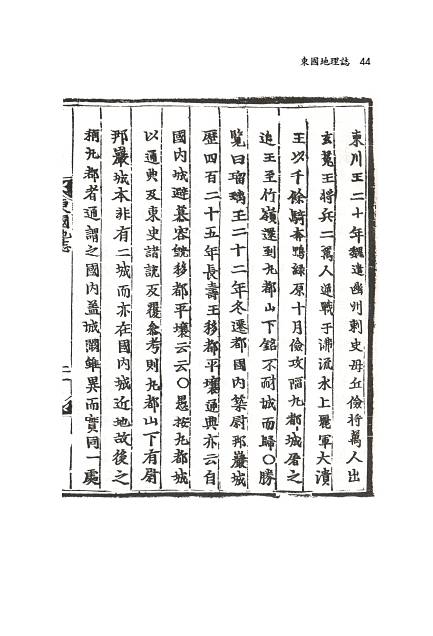 東國地理誌 44
東川王二十年魏遣幽州刺史毋丘儉將萬人出
玄菟王將兵二萬人逆戰于沸流水上麗軍大潰
王以千餘騎奔鴨綠原十月儉攻陷九都城屠之
追王至竹嶺還到九都山下銘不耐城而歸○勝
覽曰瑠璃王二十二年冬遷都國內築尉那巖城
歷四百二十五年長壽王移都平壤通典亦云自
國內城避慕容皝移都平壤云云○愚按九都城
以通典及東史諸說反覆叅考則九都山下有尉
那巖城本非有二城而亦在國內城近地故後之
稱九都者通謂之國內盖城闕雖異而實同一處